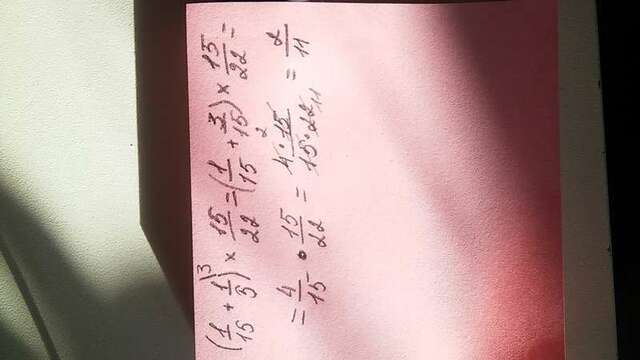 (1/15 + 1/5)³ × 15/22 = (1/15 + 3/15) × 15/22 =
= 4/15 • 15/22 = 4² · 15 / 15 · 22 11 = 2/11